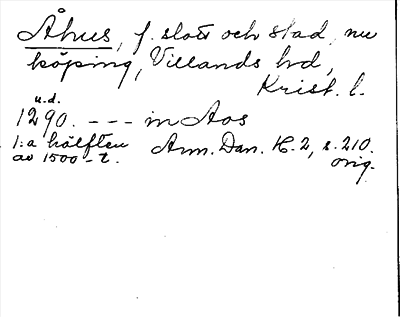 Åhus, f. slott och stad, nu
köping, Villands hd,
Krist. l.
u.d.
1290. --- in Aos
1:a hälften Ann. Dan. H. 2, s. 210.
av 1500-t. orig.